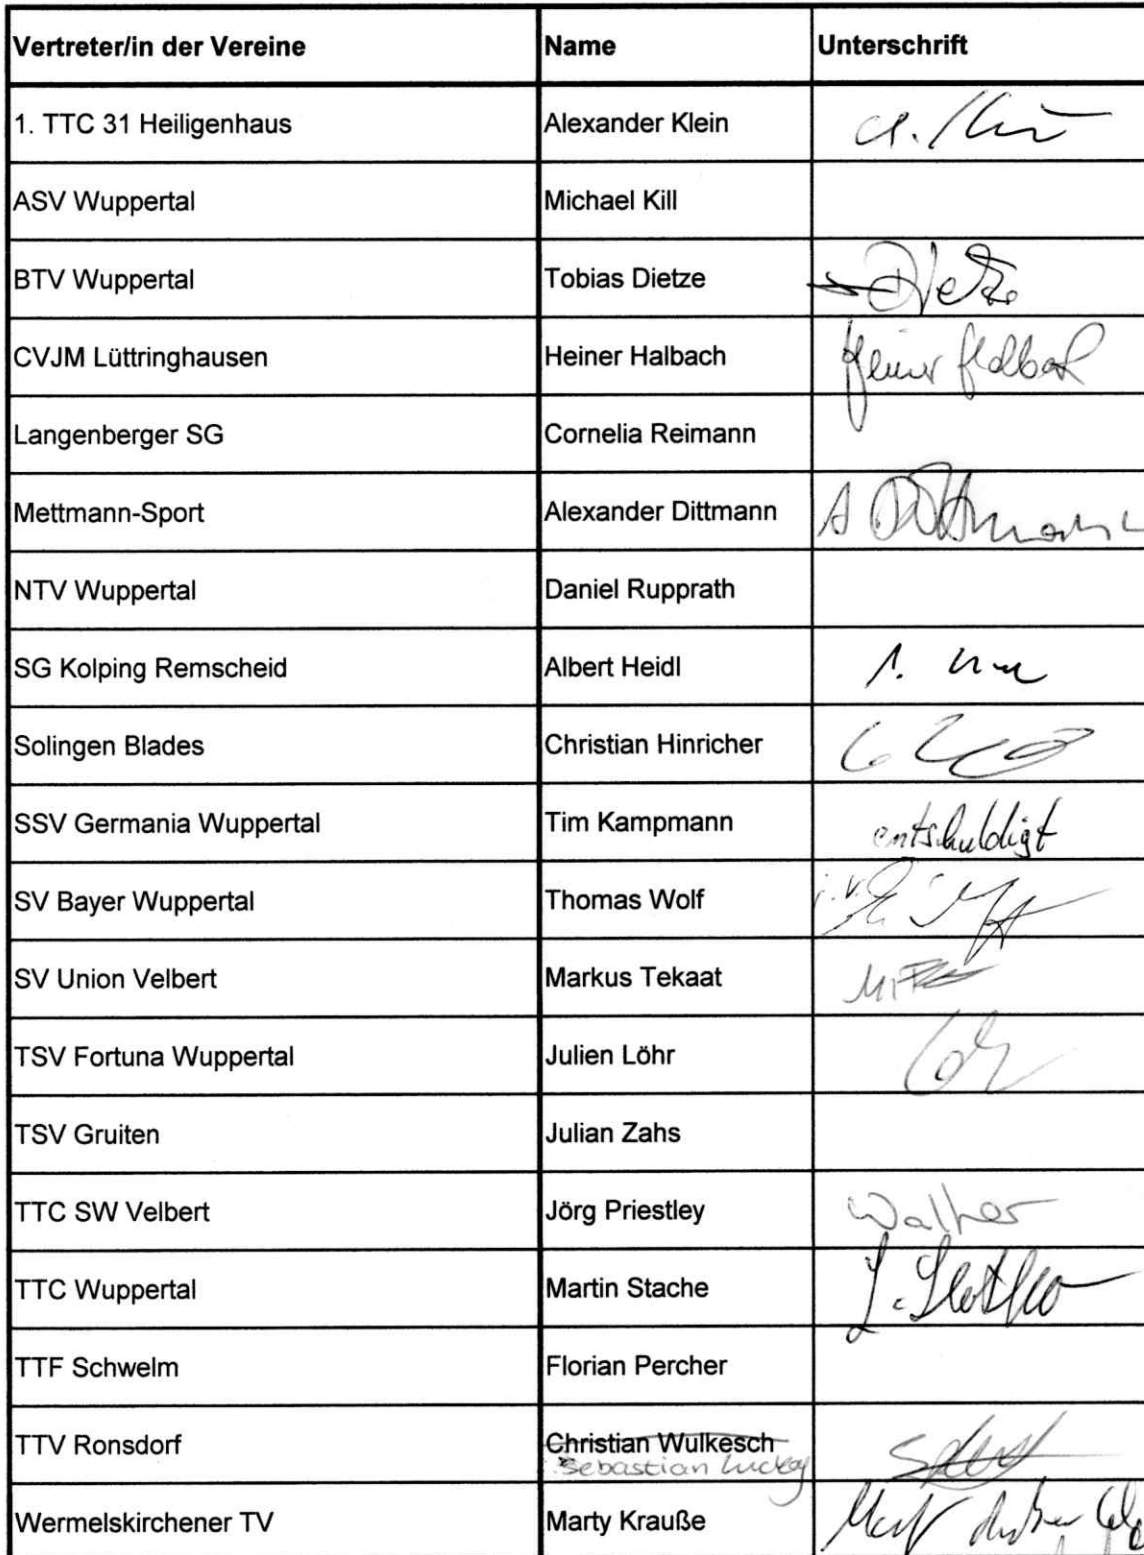 Vertreter/in der Vereine Name Unterschrift
1. TTC 31 Heiligenhaus Alexander Klein
ASV Wuppertal Michael Kill
BTV Wuppertal Tobias Dietze Dietze
CVJM Lüttringhausen Heiner Halbach Heiner Halbach
Langenberger SG Cornelia Reimann
Mettmann-Sport Alexander Dittmann A Dittmann
NTV Wuppertal Daniel Rupprath
SG Kolping Remscheid Albert Heidl
Solingen Blades Christian Hinricher
SSV Germania Wuppertal Tim Kampmann entschuldigt
SV Bayer Wuppertal Thomas Wolf i.V.
SV Union Velbert Markus Tekaat
TSV Fortuna Wuppertal Julien Löhr
TSV Gruiten Julian Zahs
TTC SW Velbert Jörg Priestley Walther
TTC Wuppertal Martin Stache
TTF Schwelm Florian Percher
TTV Ronsdorf Christian Wulkesch
Sebastian Luckey
Wermelskirchener TV Marty Krauße